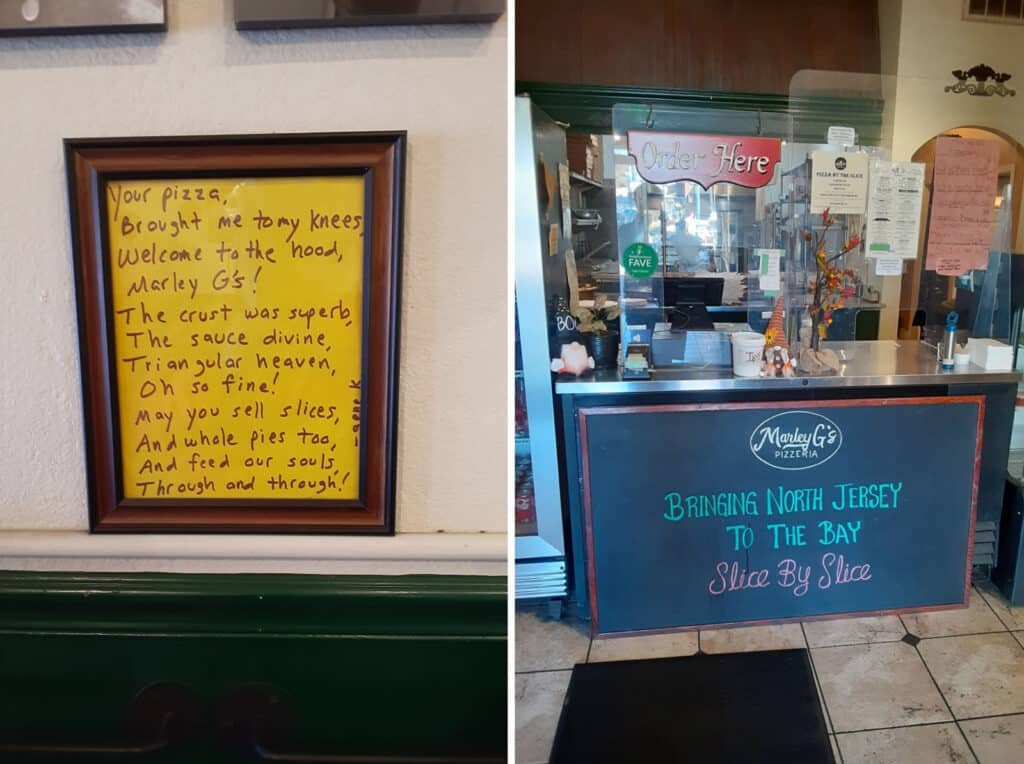 Your pizza,
Brought me to my knees,
Welcome to the hood,
Marley G's!
The crust was superb,
The sauce divine,
Triangular heaven,
Oh so fine!
May you sell slices,
And whole pies too,
And feed our souls,
Through and through!
Order Here
PIZZA BY THE SLICE
FAVE
BO
Marley G's
PIZZERIA
BRINGING NORTH JERSEY
TO THE BAY
Slice By Slice